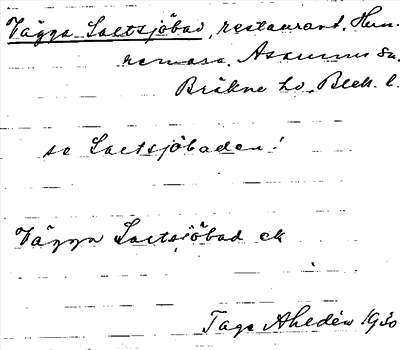 Vägga Saltsjöbad, restaurant. Hun-
nemara. Asarums sn.
Bräkne hd. Blek. l.
se Saltsjöbaden!
Vägga Saltsjöbad ek
Tage Ahldén 1930